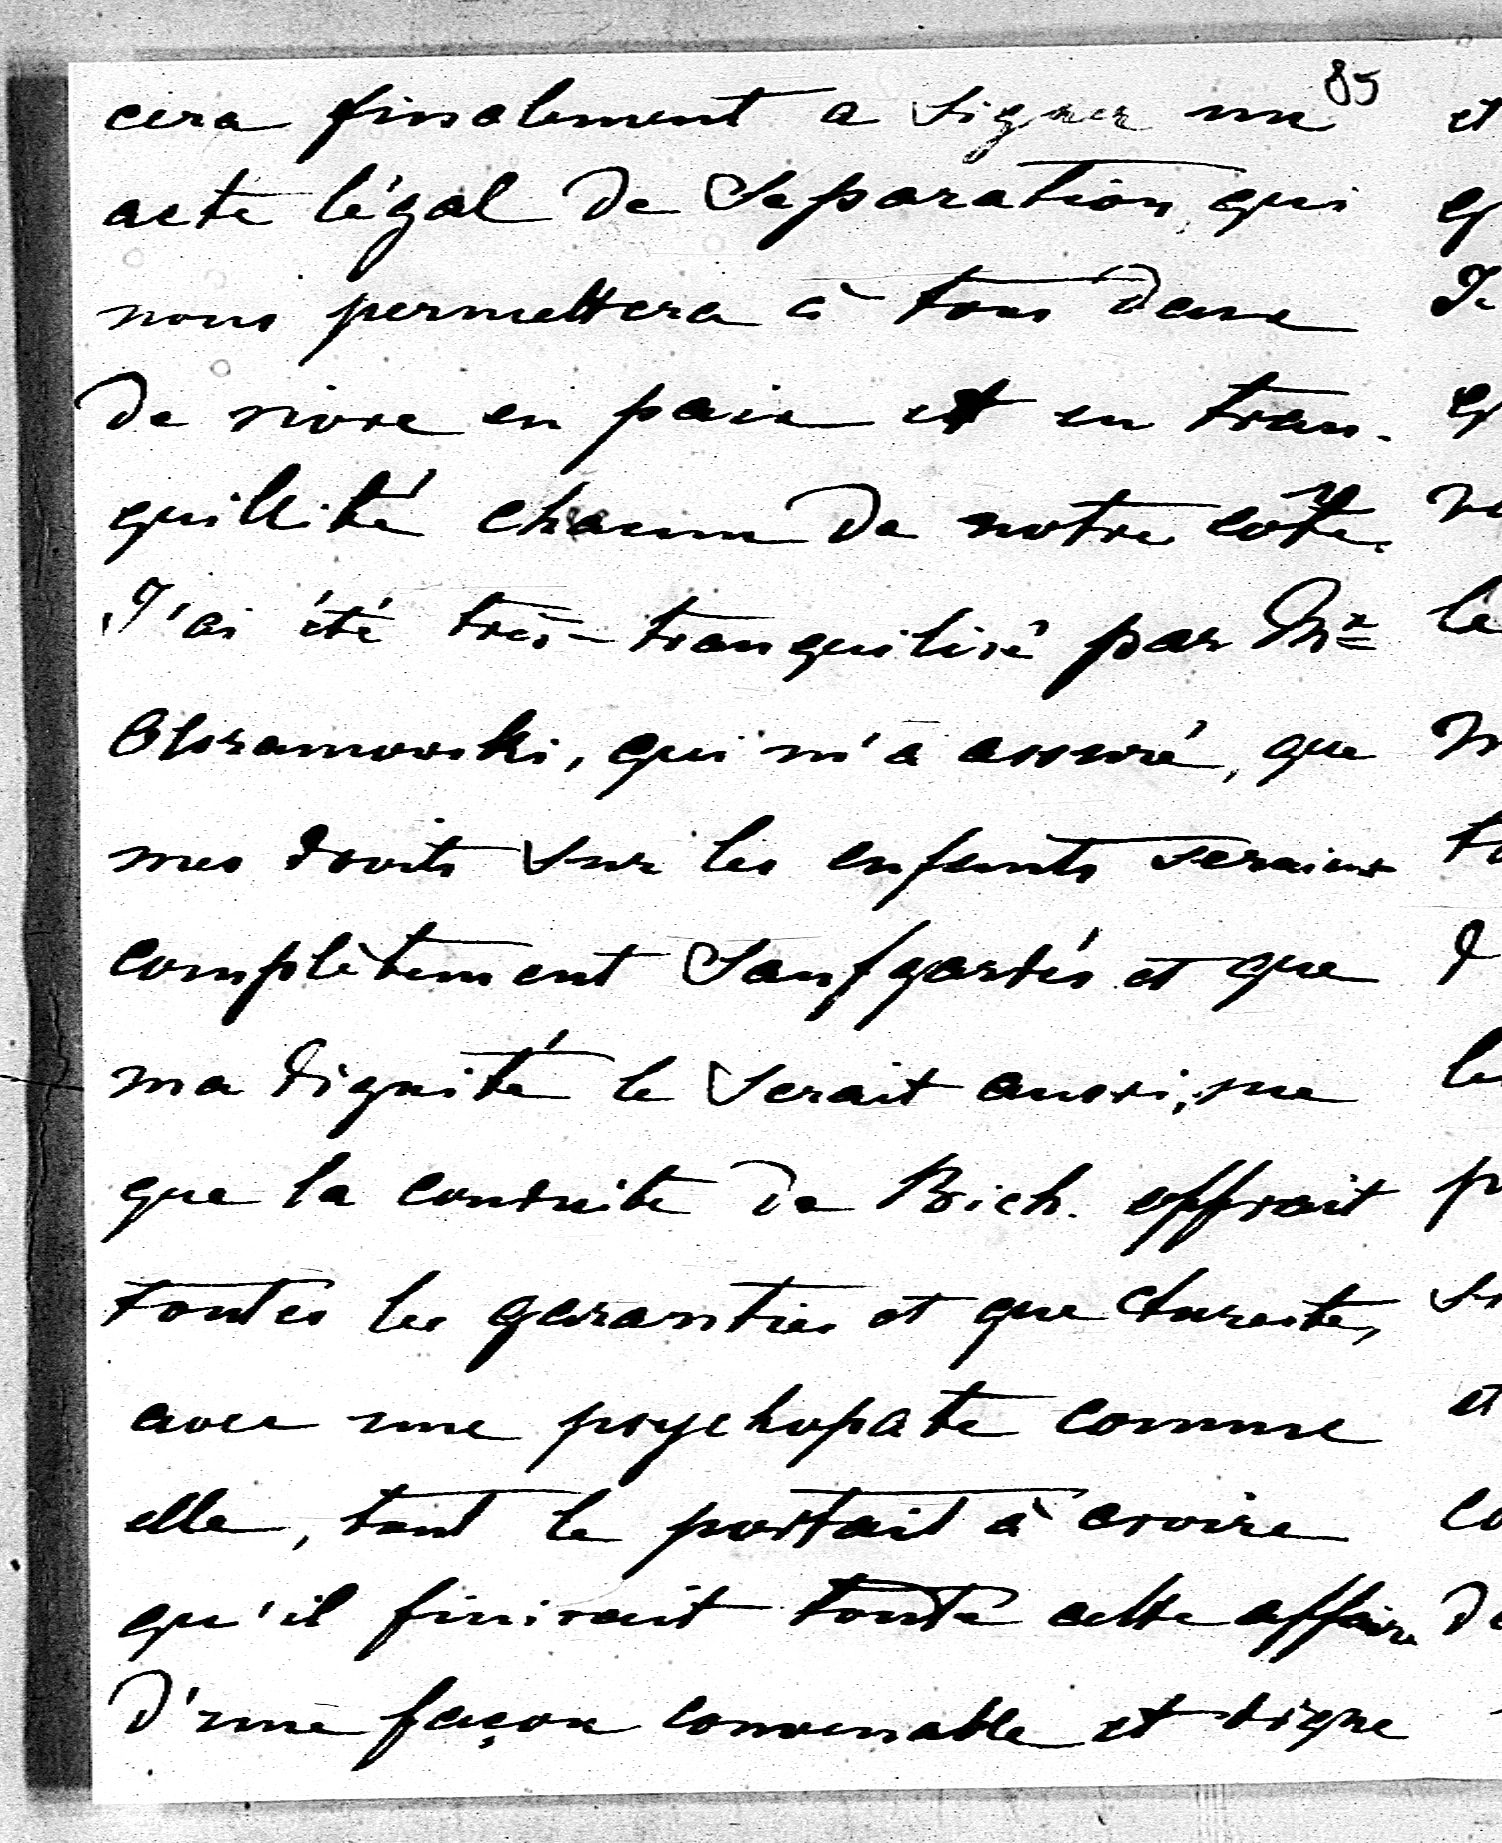 85
cera finalement a signer un
acte légal de Separation, qui
nous permettera à tous deux
de vivre en paix et en tran-
quillité chacun de notre côté.
J'ai été très-tranquilisé par Mr
Abramowski, qui m'a assuré, que
mes droits sur les enfants seraient
complètement saufgardés et que
ma dignité le serait aussi,
que la conduite de Bich. offrait
toutes les garanties et que du reste,
avec une psychopate comme
elle, tout le portait à croire
qu'il finirait toute cette affaire
d'une façon convenable et digne